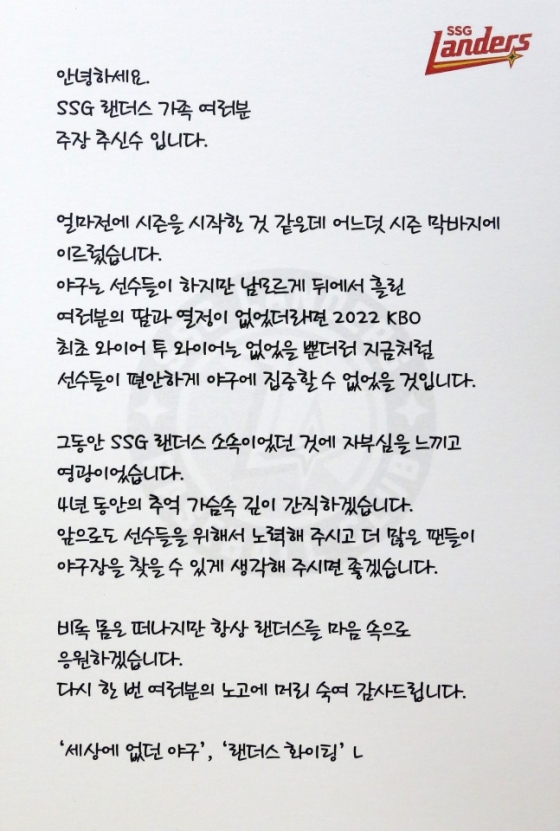 SSG
Landers
안녕하세요.
SSG 랜더스 가족 여러분
주장 추신수 입니다.
얼마전에 시즌을 시작한 것 같은데 어느덧 시즌 막바지에
이르렀습니다.
야구는 선수들이 하지만 남모르게 뒤에서 흘린
여러분의 땀과 열정이 없었더라면 2022 KBO
최초 와이어 투 와이어는 없었을 뿐더러 지금처럼
선수들이 편안하게 야구에 집중할 수 없었을 것입니다.
그동안 SSG 랜더스 소속이었던 것에 자부심을 느끼고
영광이었습니다.
4년 동안의 추억 가슴속 깊이 간직하겠습니다.
앞으로도 선수들을 위해서 노력해 주시고 더 많은 팬들이
야구장을 찾을 수 있게 생각해 주시면 좋겠습니다.
비록 몸은 떠나지만 항상 랜더스를 마음 속으로
응원하겠습니다.
다시 한 번 여러분의 노고에 머리 숙여 감사드립니다.
‘세상에 없던 야구’, ‘랜더스 화이팅’ L